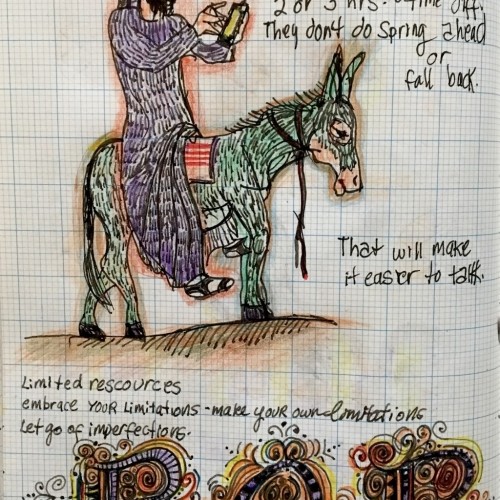 2 or 3 hrs. time diff.
They don't do Spring ahead
or
fall back.
That will make
it easier to talk.
Limited rescources
embrace YOUR Limitations - make your own limitations
Let go of imperfections.